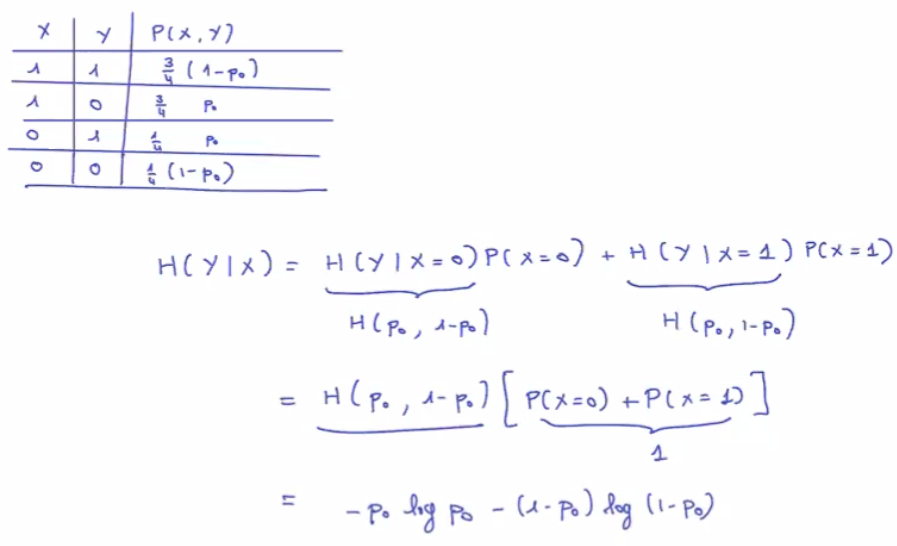 X Y P(X,Y)
1 1 3/4 (1-p₀)
1 0 3/4 p₀
0 1 1/4 p₀
0 0 1/4 (1-p₀)
H(Y|X) = H(Y|X=0)P(X=0) + H(Y|X=1)P(X=1)
H(p₀, 1-p₀) H(p₀, 1-p₀)
= H(p₀, 1-p₀) [P(X=0) + P(X=1)]
1
= -p₀ log p₀ - (1-p₀) log (1-p₀)